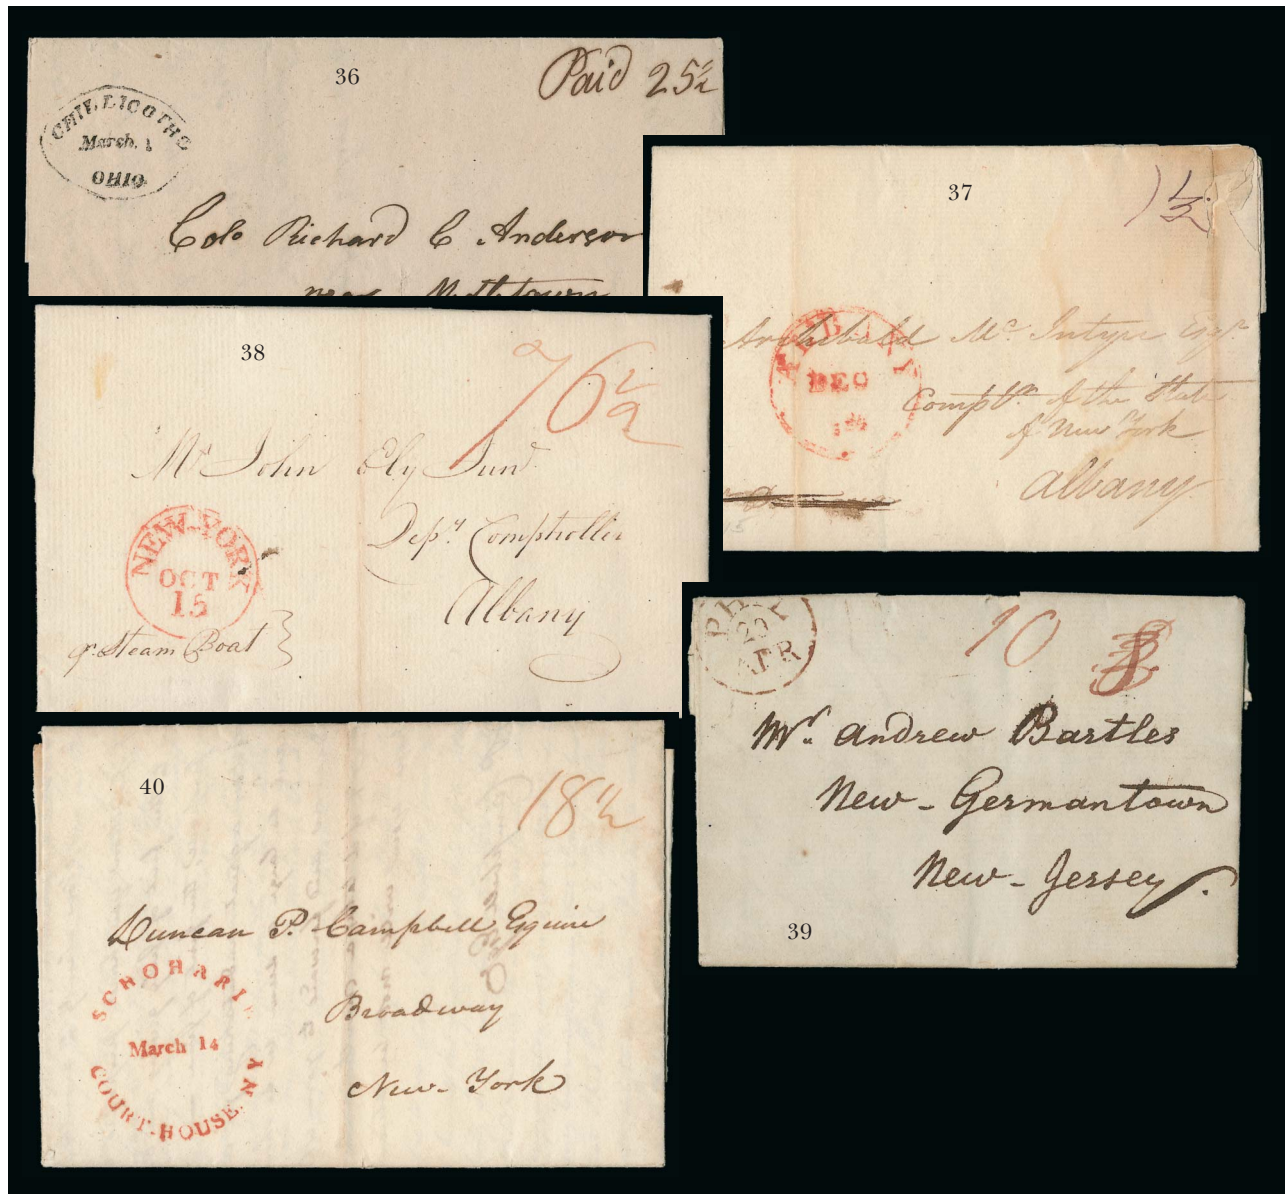 36
Paid 25½
CHILLICOTHE
March. 1
OHIO
Colo Richard C Anderson
near
37
1½
Archibald Mc Intyre Esqr
ALBANY
DEC
Comptr of the State
of New York
Albany
38
76½
Mr John Ely Junr
Depy Comptroller
Albany
NEW-YORK
OCT
15
pr Steam Boat
PHIL
29
APR
10
Mr. Andrew Bartles
New-Germantown
New-Jersey.
39
40
18½
Duncan P. Campbell Esquire
Broadway
New-York
SCHOHARRIE
March 14
COURT-HOUSE. NY